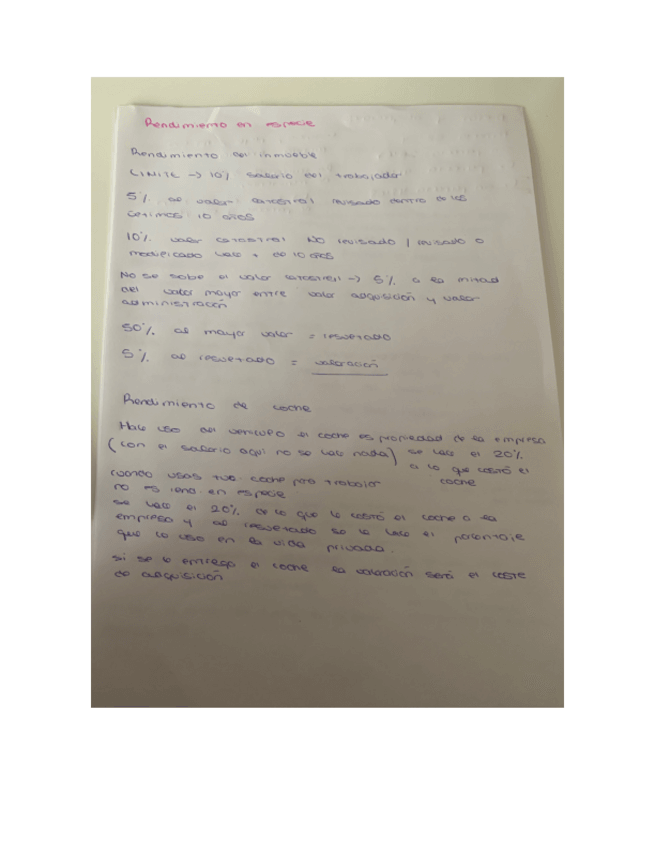 Rendimiento en especie
Rendimiento del inmueble
LIMITE → 10% salario del trabajador
5% al valor catastral revisado dentro de los
últimos 10 años
10% valor catastral NO revisado / revisado o
modificado hace + de 10 años
No se sabe el valor catastral → 5% a la mitad
del valor mayor entre valor adquisición y valor
administración
50% al mayor valor = resultado
5% al resultado = valoración
Rendimiento de coche
Hace uso del vehículo el coche es propiedad de la empresa
(con el salario aquí no se hace nada) se hace el 20%
a lo que costó el
coche
cuando usas tu coche para trabajar
no es renta en especie
se hace el 20% de lo que le costó el coche a la
empresa y al resultado se le hace el porcentaje
que lo uso en la vida privada.
si se le entrega el coche la valoración será el coste
de adquisición